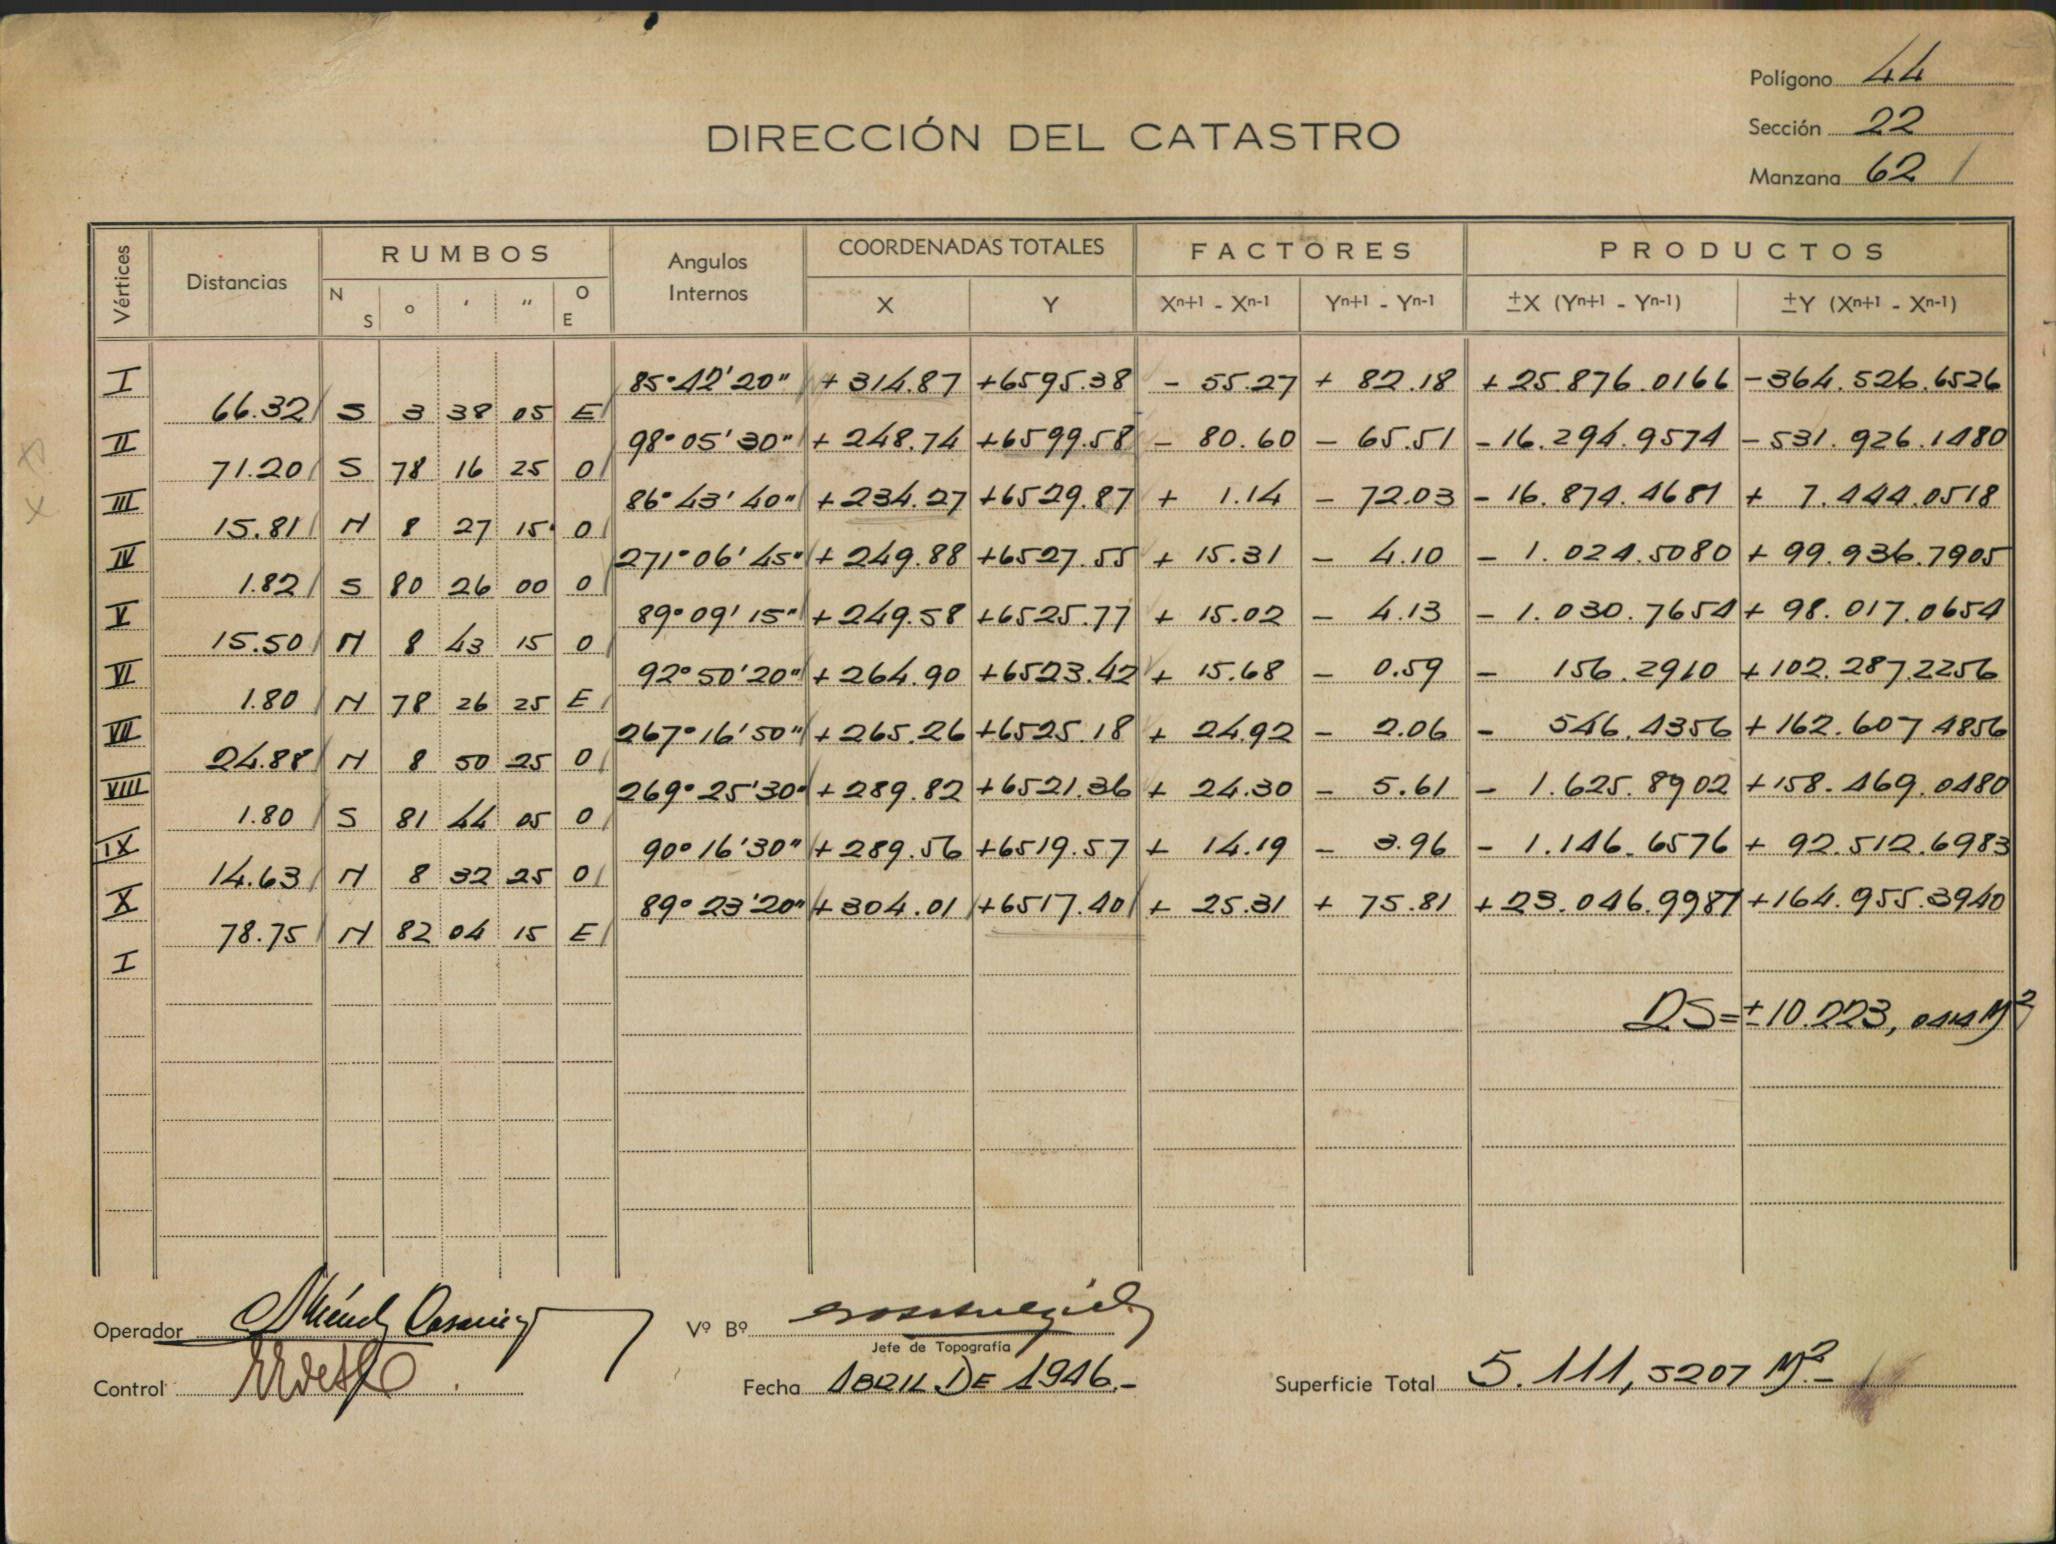 Polígono 44
DIRECCIÓN DEL CATASTRO
Sección 22
Manzana 62 /
Vértices Distancias RUMBOS Angulos Internos COORDENADAS TOTALES FACTORES PRODUCTOS
N S o ' " O E X Y Xn+1 - Xn-1 Yn+1 - Yn-1 ±X (Yn+1 - Yn-1) ±Y (Xn+1 - Xn-1)
I 85°42'20" +314.87 +6595.38 - 55.27 + 82.18 +25.876.0166 -364.526.6526
66.32 S 3 38 05 E
II 98°05'30" +248.74 +6599.58 - 80.60 - 65.51 -16.294.9574 -531.926.1480
71.20 S 78 16 25 O
III 86°43'40" +234.27 +6529.87 + 1.14 - 72.03 -16.874.4681 + 7.444.0518
15.81 N 8 27 15 O
IV 271°06'45" +249.88 +6527.55 + 15.31 - 4.10 - 1.024.5080 + 99.936.7905
1.82 S 80 26 00 O
V 89°09'15" +249.58 +6525.77 + 15.02 - 4.13 - 1.030.7654 + 98.017.0654
15.50 N 8 43 15 O
VI 92°50'20" +264.90 +6523.42 + 15.68 - 0.59 - 156.2910 +102.287.2256
1.80 N 78 26 25 E
VII 267°16'50" +265.26 +6525.18 + 24.92 - 2.06 - 546.4356 +162.607.4856
24.88 N 8 50 25 O
VIII 269°25'30" +289.82 +6521.36 + 24.30 - 5.61 - 1.625.8902 +158.469.0480
1.80 S 81 44 05 O
IX 90°16'30" +289.56 +6519.57 + 14.19 - 3.96 - 1.146.6576 + 92.512.6983
14.63 N 8 32 25 O
X 89°23'20" +304.01 +6517.40 + 25.31 + 75.81 +23.046.9981 +164.955.3940
78.75 N 82 04 15 E
I
DS=±10.223,0414 M2
Operador
Vº Bº
Jefe de Topografía
Control
Fecha ABRIL DE 1946.-
Superficie Total 5.111,5207 M2.-